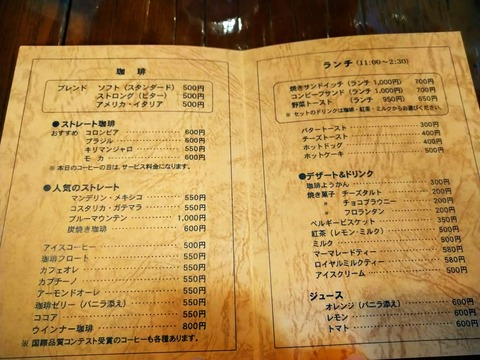 珈琲
ブレンド ソフト（スタンダード） 500円
ストロング（ビター） 500円
アメリカ・イタリア 500円
●ストレート珈琲
おすすめ コロンビア 600円
ブラジル 600円
キリマンジャロ 550円
モカ 600円
※本日のコーヒーの日は、サービス料金になります。
●人気のストレート
マンデリン・メキシコ 550円
コスタリカ・ガテマラ 550円
ブルーマウンテン 1,000円
炭焼き珈琲 600円
アイスコーヒー 500円
珈琲フロート 550円
カフェオレ 550円
カプチーノ 550円
アーモンドオーレ 550円
珈琲ゼリー（バニラ添え） 550円
ココア 550円
ウインナー珈琲 800円
※国際品質コンテスト受賞のコーヒーも各種あります。
ランチ（11:00〜2:30）
焼きサンドイッチ（ランチ 1,000円） 700円
コンビーフサンド（ランチ 1,000円） 700円
野菜トースト （ランチ 950円） 650円
※セットのドリンクは珈琲・紅茶・ミルクからお選びください。
バタートースト 300円
チーズトースト 400円
ホットドッグ 400円
ホットケーキ 500円
●デザート&ドリンク
珈琲ようかん 300円
焼き菓子 チーズタルト 200円
チョコブラウニー 200円
〃 フロランタン 200円
ベルギービスケット 350円
紅茶（レモン・ミルク） 500円
ミルク 800円
マーマレードティー 580円
ロイヤルミルクティー 580円
アイスクリーム 500円
ジュース
オレンジ（バニラ添え） 600円
レモン 600円
トマト 600円